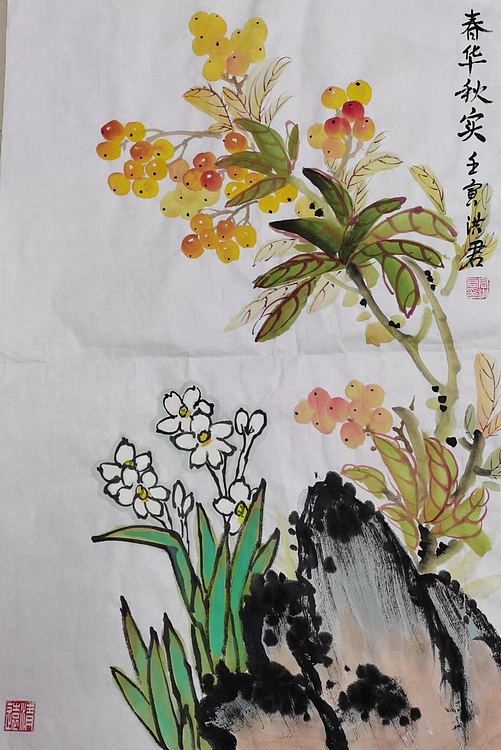 春华秋实 壬寅 洪君
清远